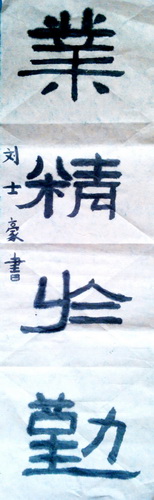 業精於勤
刘士豪書